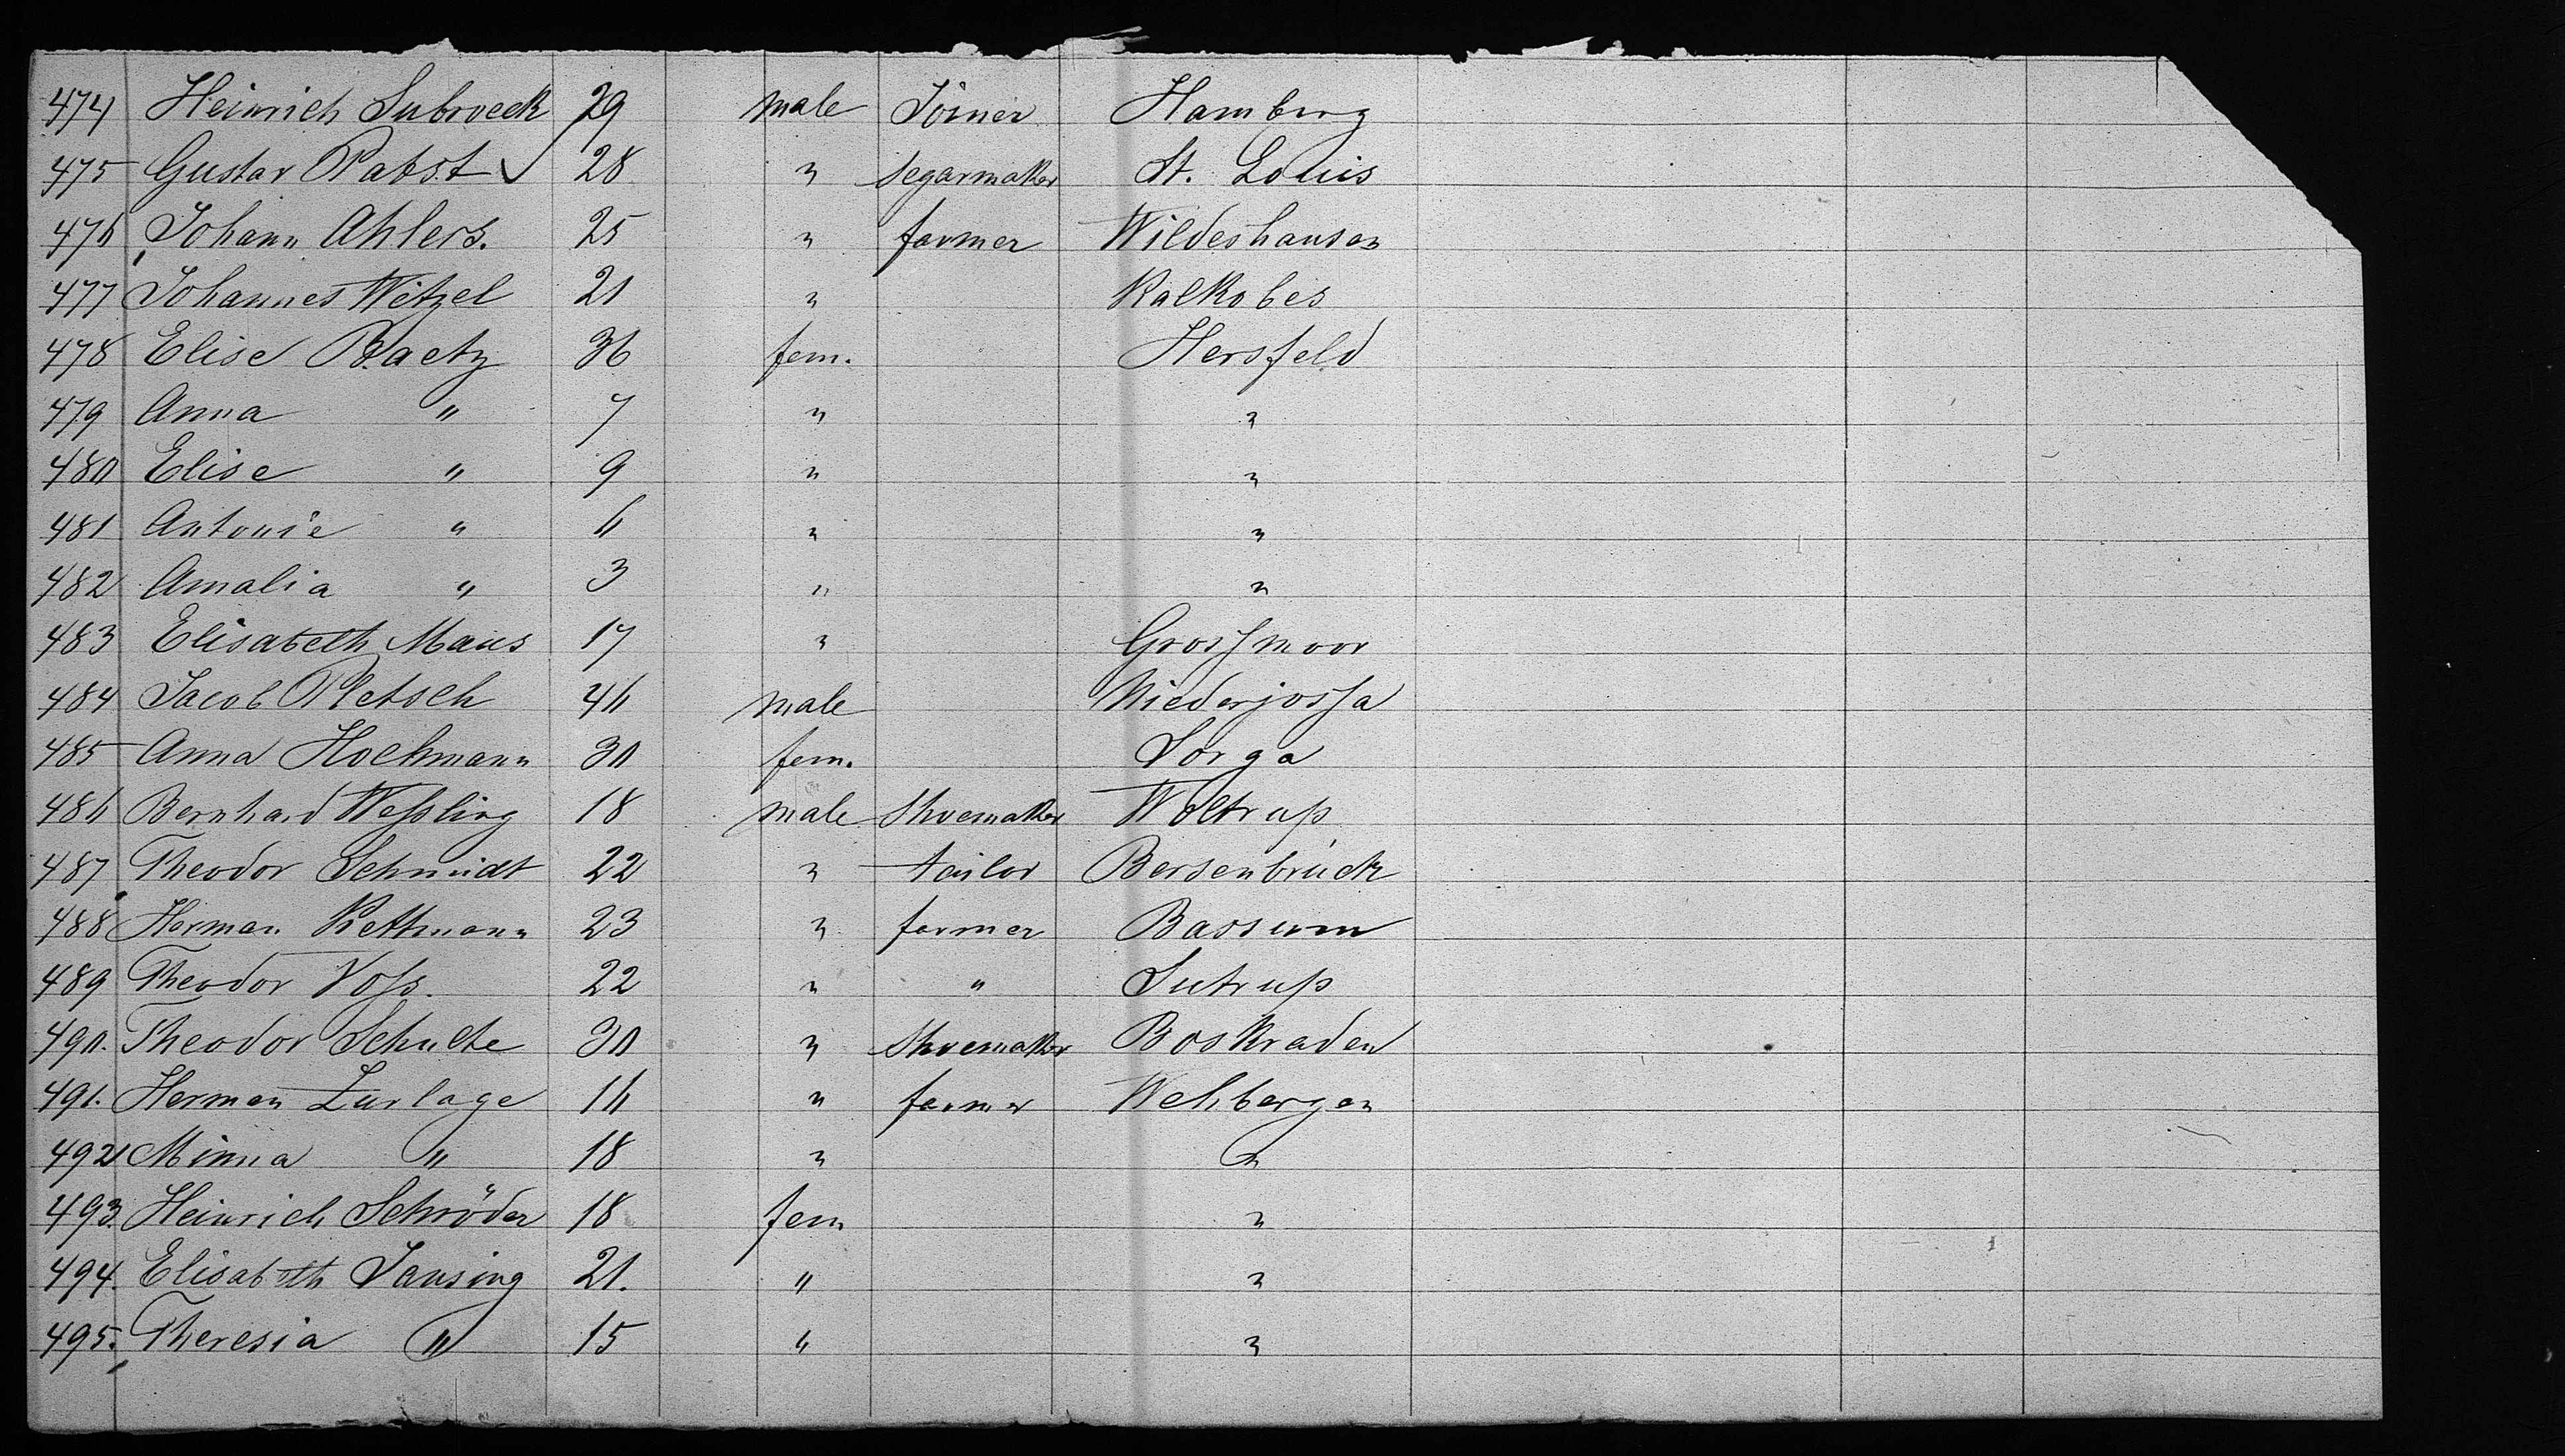 474 Heinrich Lubroeck 29 male Joiner Hamburg
475 Gustav Pabst ✓ 28 " Segarmaker St. Louis
476 Johann Ahlers. 25 " farmer Wildeshausen
477 Johannes Wetzel 21 " Kalkobes
478 Elise Baetz 36 fem. Hersfeld
479 Anna " 7 " "
480 Elise " 9 " "
481 Antonie " 6 " "
482 Amalia " 3 " "
483 Elisabeth Maus 17 " Grossmoor
484 Jacob Pletsch 46 male Niederjossa
485 Anna Hochmann 30 fem. Sorga
486 Bernhard Wessling 18 male Shoemaker Woltrup
487 Theodor Schmidt 22 " tailor Bersenbrück
488 Herman Rethmann 23 " farmer Bassum
489 Theodor Voss. 22 " " Sutrup
490. Theodor Schulte 30 " Shoemaker Boskraden
491. Herman Zurlage 16 " farmer Wehbergen
492 Minna " 18 " "
493. Heinrich Schröder 18 fem "
494. Elisabeth Jansing 21. " "
495. Theresia " 15 " "